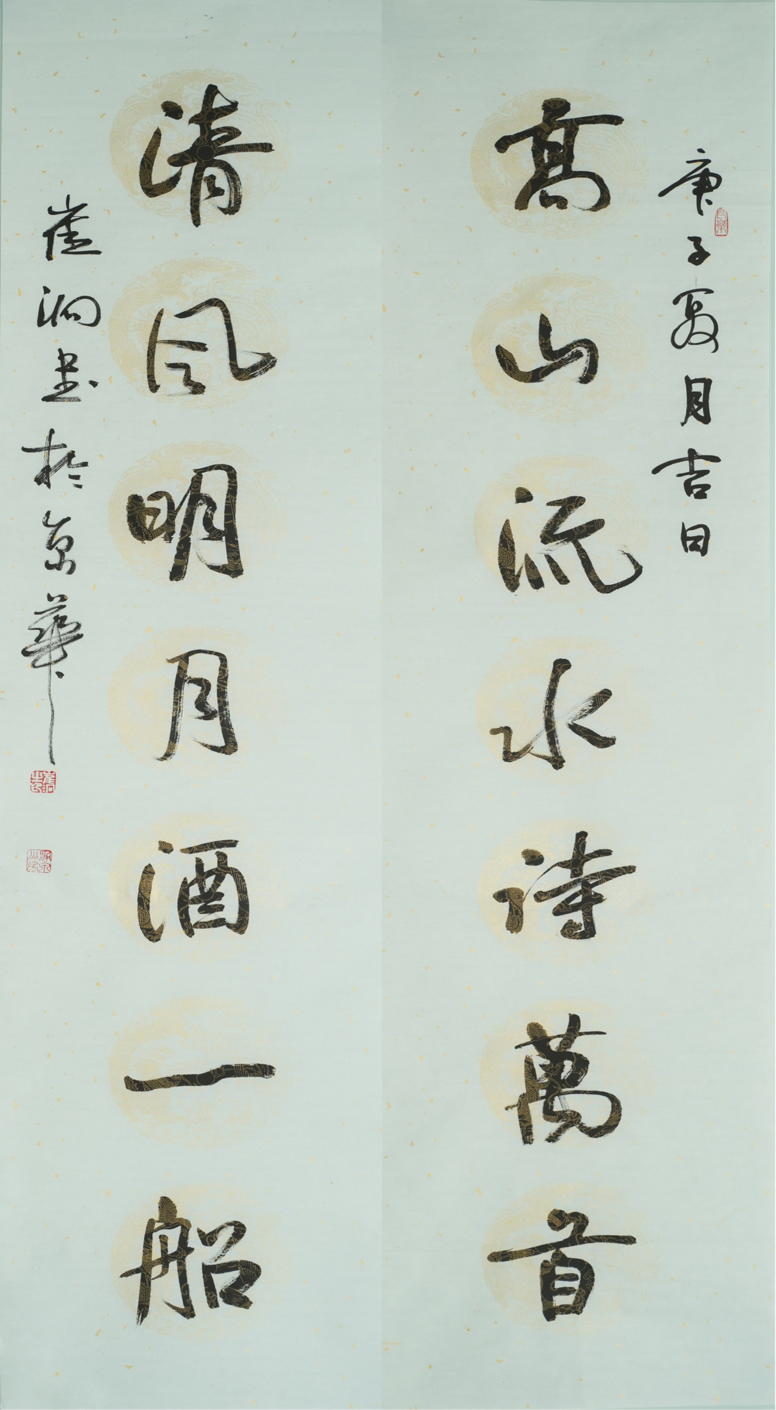 庚子夏月吉日
高山流水诗萬首
清风明月酒一船
崔泂书於京華